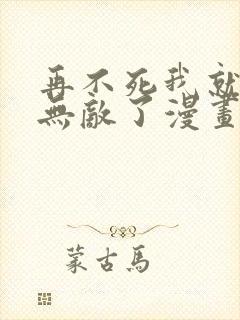 再不死我就
無敵了漫畫
蒙古馬